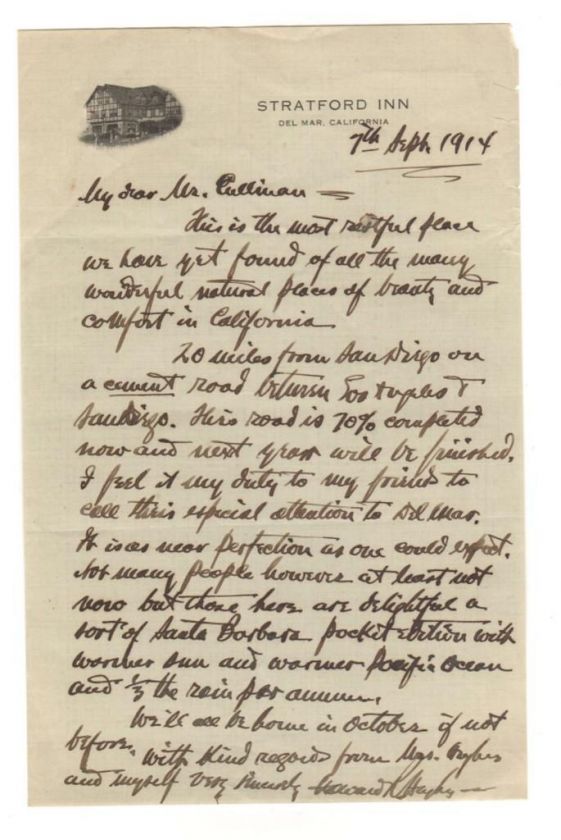 STRATFORD INN
DEL MAR, CALIFORNIA
7th Sept. 1914
My dear Mr. Cullinan
This is the most restful place
we have yet found of all the many
wonderful natural places of beauty and
comfort in California
20 miles from San Diego on
a cement road between Los Angeles &
San Diego. This road is 70% completed
now and next year will be finished.
I feel it my duty to my friends to
call their especial attention to Del Mar.
It is as near perfection as one could expect.
Not many people however at least not
now but those here are delightful a
sort of Santa Barbara pocket edition with
warmer sun and warmer Pacific Ocean
and 1/3 the rain per annum.
We'll all be home in October if not
before. With kind regards from Mrs. Hughes
and myself Very Sincerely Howard R Hughes